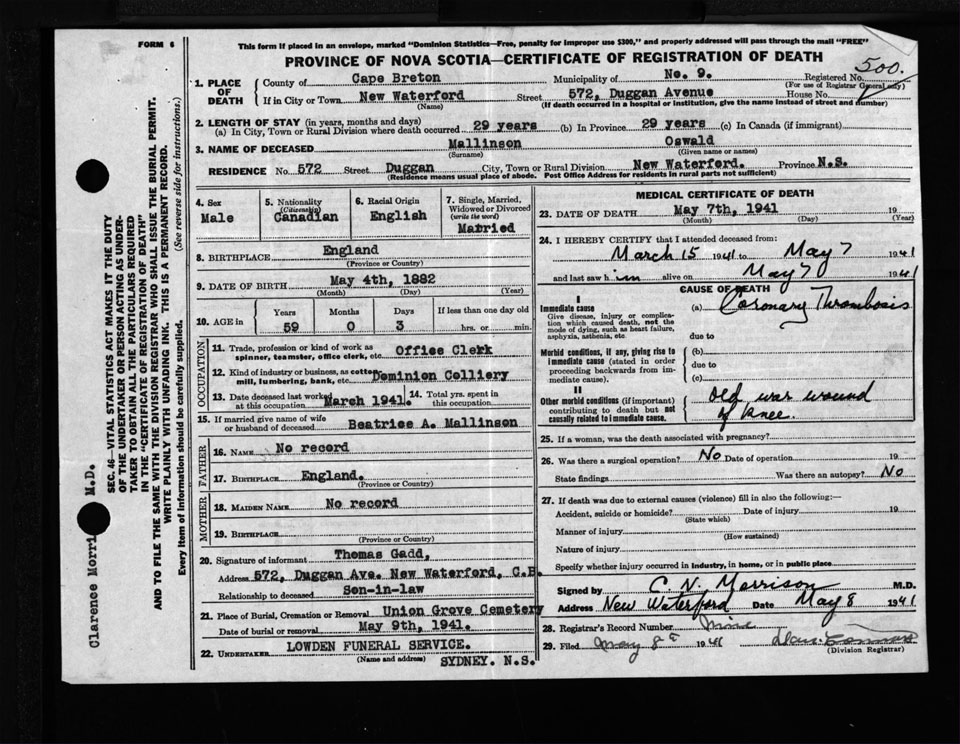 FORM 6
This form if placed in an envelope, marked "Dominion Statistics—Free, penalty for improper use $300," and properly addressed will pass through the mail "FREE"
PROVINCE OF NOVA SCOTIA—CERTIFICATE OF REGISTRATION OF DEATH
500.
1. PLACE OF DEATH
County of Cape Breton Municipality of No. 9. Registered No.
(For use of Registrar General only)
If in City or Town New Waterford Street 572, Duggan Avenue House No.
(Name) (If death occurred in a hospital or institution, give the name instead of street and number)
2. LENGTH OF STAY (in years, months and days)
(a) In City, Town or Rural Division where death occurred 29 years (b) In Province 29 years (c) In Canada (if immigrant)
3. NAME OF DECEASED Mallinson Oswald
(Surname) (Given name or names)
RESIDENCE No. 572 Street Duggan City, Town or Rural Division New Waterford. Province N.S.
(Residence means usual place of abode. Post Office Address for residents in rural parts not sufficient)
4. Sex
Male
5. Nationality
(Citizenship)
Canadian
6. Racial Origin
English
7. Single, Married, Widowed or Divorced
(write the word)
Married
8. BIRTHPLACE England
(Province or Country)
9. DATE OF BIRTH May 4th, 1882
(Month) (Day) (Year)
10. AGE in Years Months Days If less than one day old
59 0 3 hrs. or min.
OCCUPATION
11. Trade, profession or kind of work as
spinner, teamster, office clerk, etc. Office Clerk
12. Kind of industry or business, as cotton
mill, lumbering, bank, etc. Dominion Colliery
13. Date deceased last worked
at this occupation March 1941.
14. Total yrs. spent in
this occupation
15. If married give name of wife
or husband of deceased Beatrice A. Mallinson
FATHER
16. NAME No record
17. BIRTHPLACE England.
(Province or Country)
MOTHER
18. MAIDEN NAME No record
19. BIRTHPLACE
(Province or Country)
20. Signature of informant Thomas Gadd,
Address 572, Duggan Ave. New Waterford, C.B.
Relationship to deceased Son-in-law
21. Place of Burial, Cremation or Removal Union Grove Cemetery
Date of burial or removal May 9th, 1941.
22. UNDERTAKER LOWDEN FUNERAL SERVICE.
(Name and address) SYDNEY. N.S.
MEDICAL CERTIFICATE OF DEATH
23. DATE OF DEATH May 7th, 1941 19
(Month) (Day) (Year)
24. I HEREBY CERTIFY that I attended deceased from:
March 15 1941 to May 7 1941
and last saw him alive on May 7 1941
CAUSE OF DEATH
I
Immediate cause
Give disease, injury or complication which caused death, not the mode of dying, such as heart failure, asphyxia, asthenia, etc.
(a) Coronary Thrombosis
due to
Morbid conditions, if any, giving rise to immediate cause (stated in order proceeding backwards from immediate cause).
(b)
due to
(c)
II
Other morbid conditions (if important) contributing to death but not causally related to immediate cause.
Old war wound
of knee.
25. If a woman, was the death associated with pregnancy?
26. Was there a surgical operation? No Date of operation 19
State findings Was there an autopsy? No
27. If death was due to external causes (violence) fill in also the following:—
Accident, suicide or homicide? Date of injury 19
(State which)
Manner of injury
(How sustained)
Nature of injury
Specify whether injury occurred in industry, in home, or in public place
Signed by C N. Morrison M.D.
Address New Waterford Date May 8 1941
28. Registrar's Record Number
29. Filed May 8th 1941
(Division Registrar)
Clarence Morri M.D.
SEC. 46—VITAL STATISTICS ACT MAKES IT THE DUTY
OF THE UNDERTAKER OR PERSON ACTING AS UNDER-
TAKER TO OBTAIN ALL THE PARTICULARS REQUIRED
IN THE "CERTIFICATE OF REGISTRATION OF DEATH"
AND TO FILE THE SAME WITH THE DIVISION REGISTRAR WHO SHALL ISSUE THE BURIAL PERMIT.
WRITE PLAINLY WITH UNFADING INK. THIS IS A PERMANENT RECORD.
Every item of information should be carefully supplied. (See reverse side for instructions.)